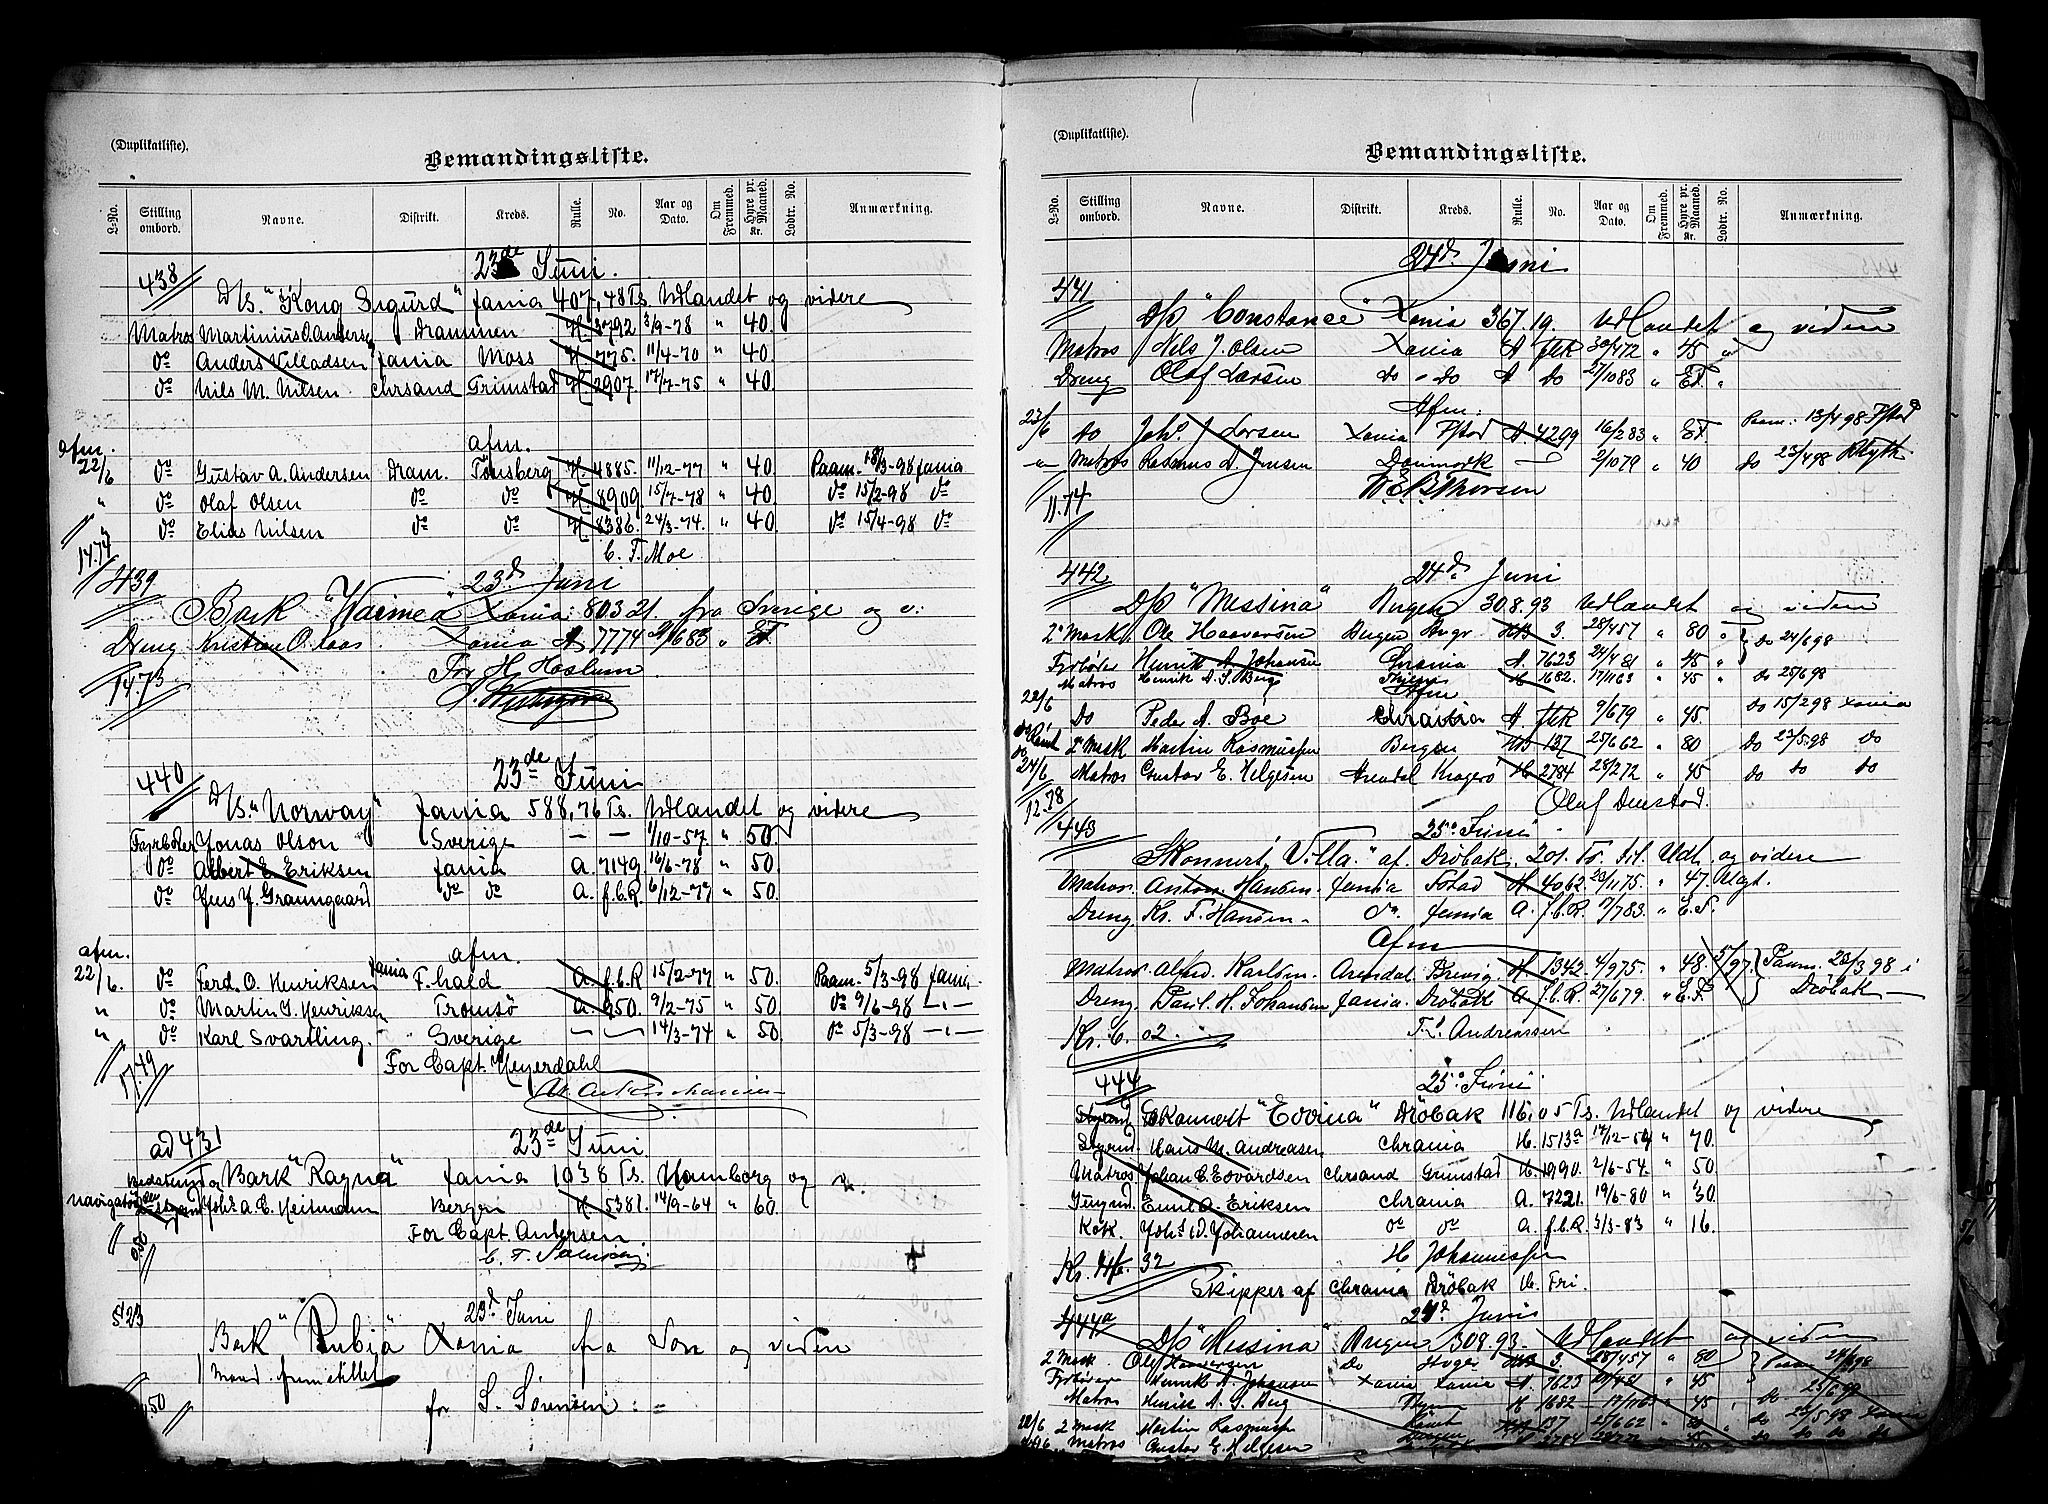 (Duplikatliste).
Bemandingsliste.
L-No. Stilling ombord. Navne. Distrikt. Kreds. Rulle. No. Aar og Dato. Om Fremmed. Hyre pr. Maaned. Kr. Lodtr. No. Anmærkning.
438 23de Juni.
D/S. "Kong Sigurd" Xania 407,48 Ts. Udlandet og videre
Matros Martinius O. Andersen Drammen H. 3792 3/9-78 " 40.
do Anders Villadsen Xania Moss H 775. 11/4-70 " 40.
do Nils M. Nilsen Chrsand Grimstad H 2907. 17/7-75 " 40.
afm. afm.
22/6 do Gustav A. Andersen Dram. Tönsberg H. 4885. 11/12-77 " 40. Paam. 18/3-98 Xania
" do Olaf Olsen do do H. 8909. 15/7-78 " 40 do 15/2-98 do
" do Elias Nilsen do do H 8386. 24/3-74. " 40. do 15/4-98 do
14.74 C. F. Moe
439 23d Juni
Bark "Waimea" Xania 803 21. fra Sverige og v:
Dreng Kristian O. Aas Xania A 7774 1683 " EF.
14.73 For H. Haslum
440 23de Juni
D/S. "Norway" Xania 588,76 Ts. Udlandet og videre
Fyrböter Jonas Olson Sverige — — 1/10-57. " 50.
do Albert E. Eriksen Xania A. 7149 16/6-78 " 50.
do Jens J. Graungaard do do A. f.b.R. 6/12-77 " 50.
afm. afm.
22/6. do Ferd. O. Henriksen Xania F.hald A. f.b.R 15/2-77 " 50. Paam. 5/3-98 Xania.
" do Martin G. Henriksen Tromsö A. 950. 9/2-75 " 50 do 9/6-98 —"—
" do Karl Svartling. Sverige — — 14/3-74 " 50. do 5/3-98 —"—
17.49 For Capt. Heyerdahl
ad 431 23de Juni
Bark "Ragna" Xania 1038 Ts. Hamborg og v.
Johs A. C. Heitmann Bergen H 5381. 14/9-64 " 60.
0,50 For Capt. Andersen
C. F.
523 23d Juni
Bark "Rubia" Xania fra Son og viden
1 mand fremstillet
,50 for S. Sörensen
(Duplikatliste).
Bemandingsliste.
L-No. Stilling ombord. Navne. Distrikt. Kreds. Rulle. No. Aar og Dato. Om Fremmed. Hyre pr. Maaned. Kr. Lodtr. No. Anmærkning.
24d Juni
441
D/S "Constance" Xania 367.19. Udlandet og viden
Matros Nils J. Olsen Xania A flR 30/472 " 45 "
Dreng Olaf Larsen do - do A do 27/1083 " EF. "
Afm:
23/6 do Johs. J Larsen Xania Fstad A 4299 16/283 " EF Paam: 13/498 Fstad
" Matros Rasmus A. Jensen Danmark — 2/1079 " 40 do 23/498
11.74 Thorsen
442. 24d Juni
D/S "Messina" Bergen 308.93 Udlandet og viden
2. Mask. Ole Haaversen Bergen Brgr HB 3. 28/457 " 80 " do 24/698
Fyrböter Henrik A. Johansen Chrania A. 7623 24/481 " 45 "
Matros Henrik A. S. Berg H 1682. 17/1163 " 45 " do 25/698
22/6 Afm
do Peder A. Böe Chrania A. flR 9/679 " 45. do 15/298 Xania
2. Mask Martin Rasmussen Bergen HB 137 25/662 " 80 do 23/5.98 do
24/6 Matros Gustav E. Helgesen Arendal Kragerö H 2784 28/272 " 45 do do do
12.38 Olaf Denstad.
443 25. Juni
Skonnert, "Villa." af. Dröbak. 201. Ts. til Udl. og videre
Matros. Anton. Hansen. Xania Fstad H 4062. 23/1175. " 47.
Dreng. Kr. F. Hansen. do. Xania A. f.b.R. 7/783. " E.F.
Afm
Matros. Alfred. Karlsen. Arendal Brevig H 1342 4/975. " 48. 5/97. Paam. 23/3.98 i
Dreng. Paul. H. Johansen Xania. Dröbak A f.b.R. 27/679. " E.F. Dröbak —
Kr. 6. 02. Fr. Andreassen
444 25. Juni
Skonnert "Edvina" Dröbak 116,05 Ts. Udlandet og videre
Styrmd. Hans M. Andreasen Chrania H. 1513a 17/12-59 " 70.
Matros Johan C. Edvardsen Chrsand Grimstad H. 1990. 2/6-54. " 50.
Jungmd. Emil A. Eriksen Chrania A. 7221. 19/6-80 " 30.
Kok. Johs. D. Johannesen do do A. f.b.R. 3/3-83 " 16.
Kr. 4/6. 32 H Johannessen
Skipper af Chrania Dröbak U. Fri.
444a 24d Juni
D/S "Messina" Bergen 308.93. Udlandet og viden
2 Mask. Ole Haaversen do HB 3. 28/457 " 80 Paam 24/698
Fyrböter Henrik A. Johansen Xania Xania A. 7623 24/481 " 45
Matros Henrik A. S. Berg H 1682 - 17/1163 " 45 do 25/698
22/6 2 Mask Martin Rasmussen HB 137 25/662 " 80 do 23/5 98 Xania
Matros Gustav E. Helgesen H 2784 28/272 " 45 do do do